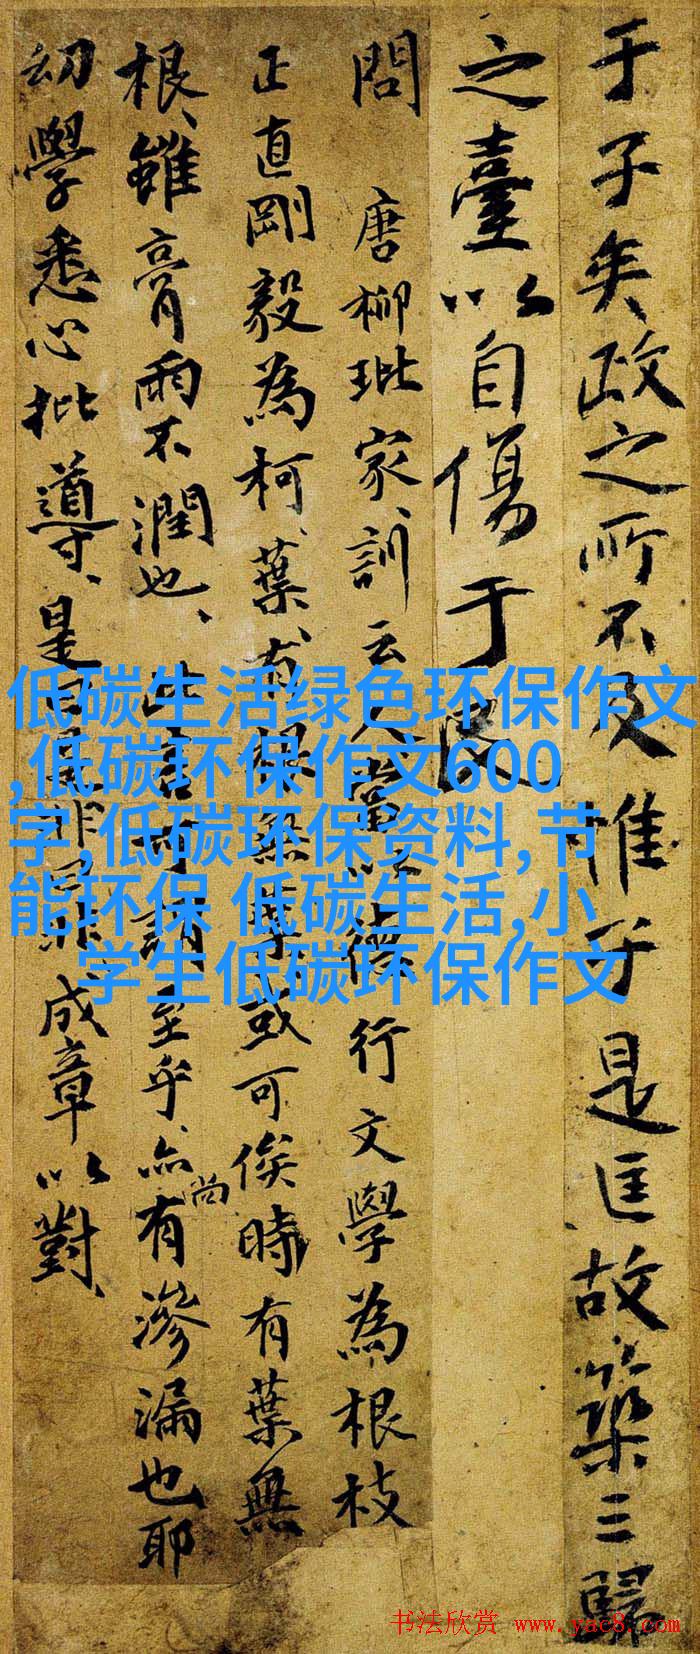 于子矣政之所不及惟子是匡故築三歸
之臺以自傷于民
問 唐柳玭家訓云人當以德行文學為根枝
正直剛毅為柯葉有根無葉或可俟時有葉無
根雖膏雨不潤也此言可謂至乎亦尚有滲漏也耶
幼學悉心批導是曰是非曰非成章以對
低碳生活绿色环保作文
,低碳环保作文600
字,低碳环保资料,节
能环保 低碳生活,小
学生低碳环保作文
书法欣赏 www.yac8.com